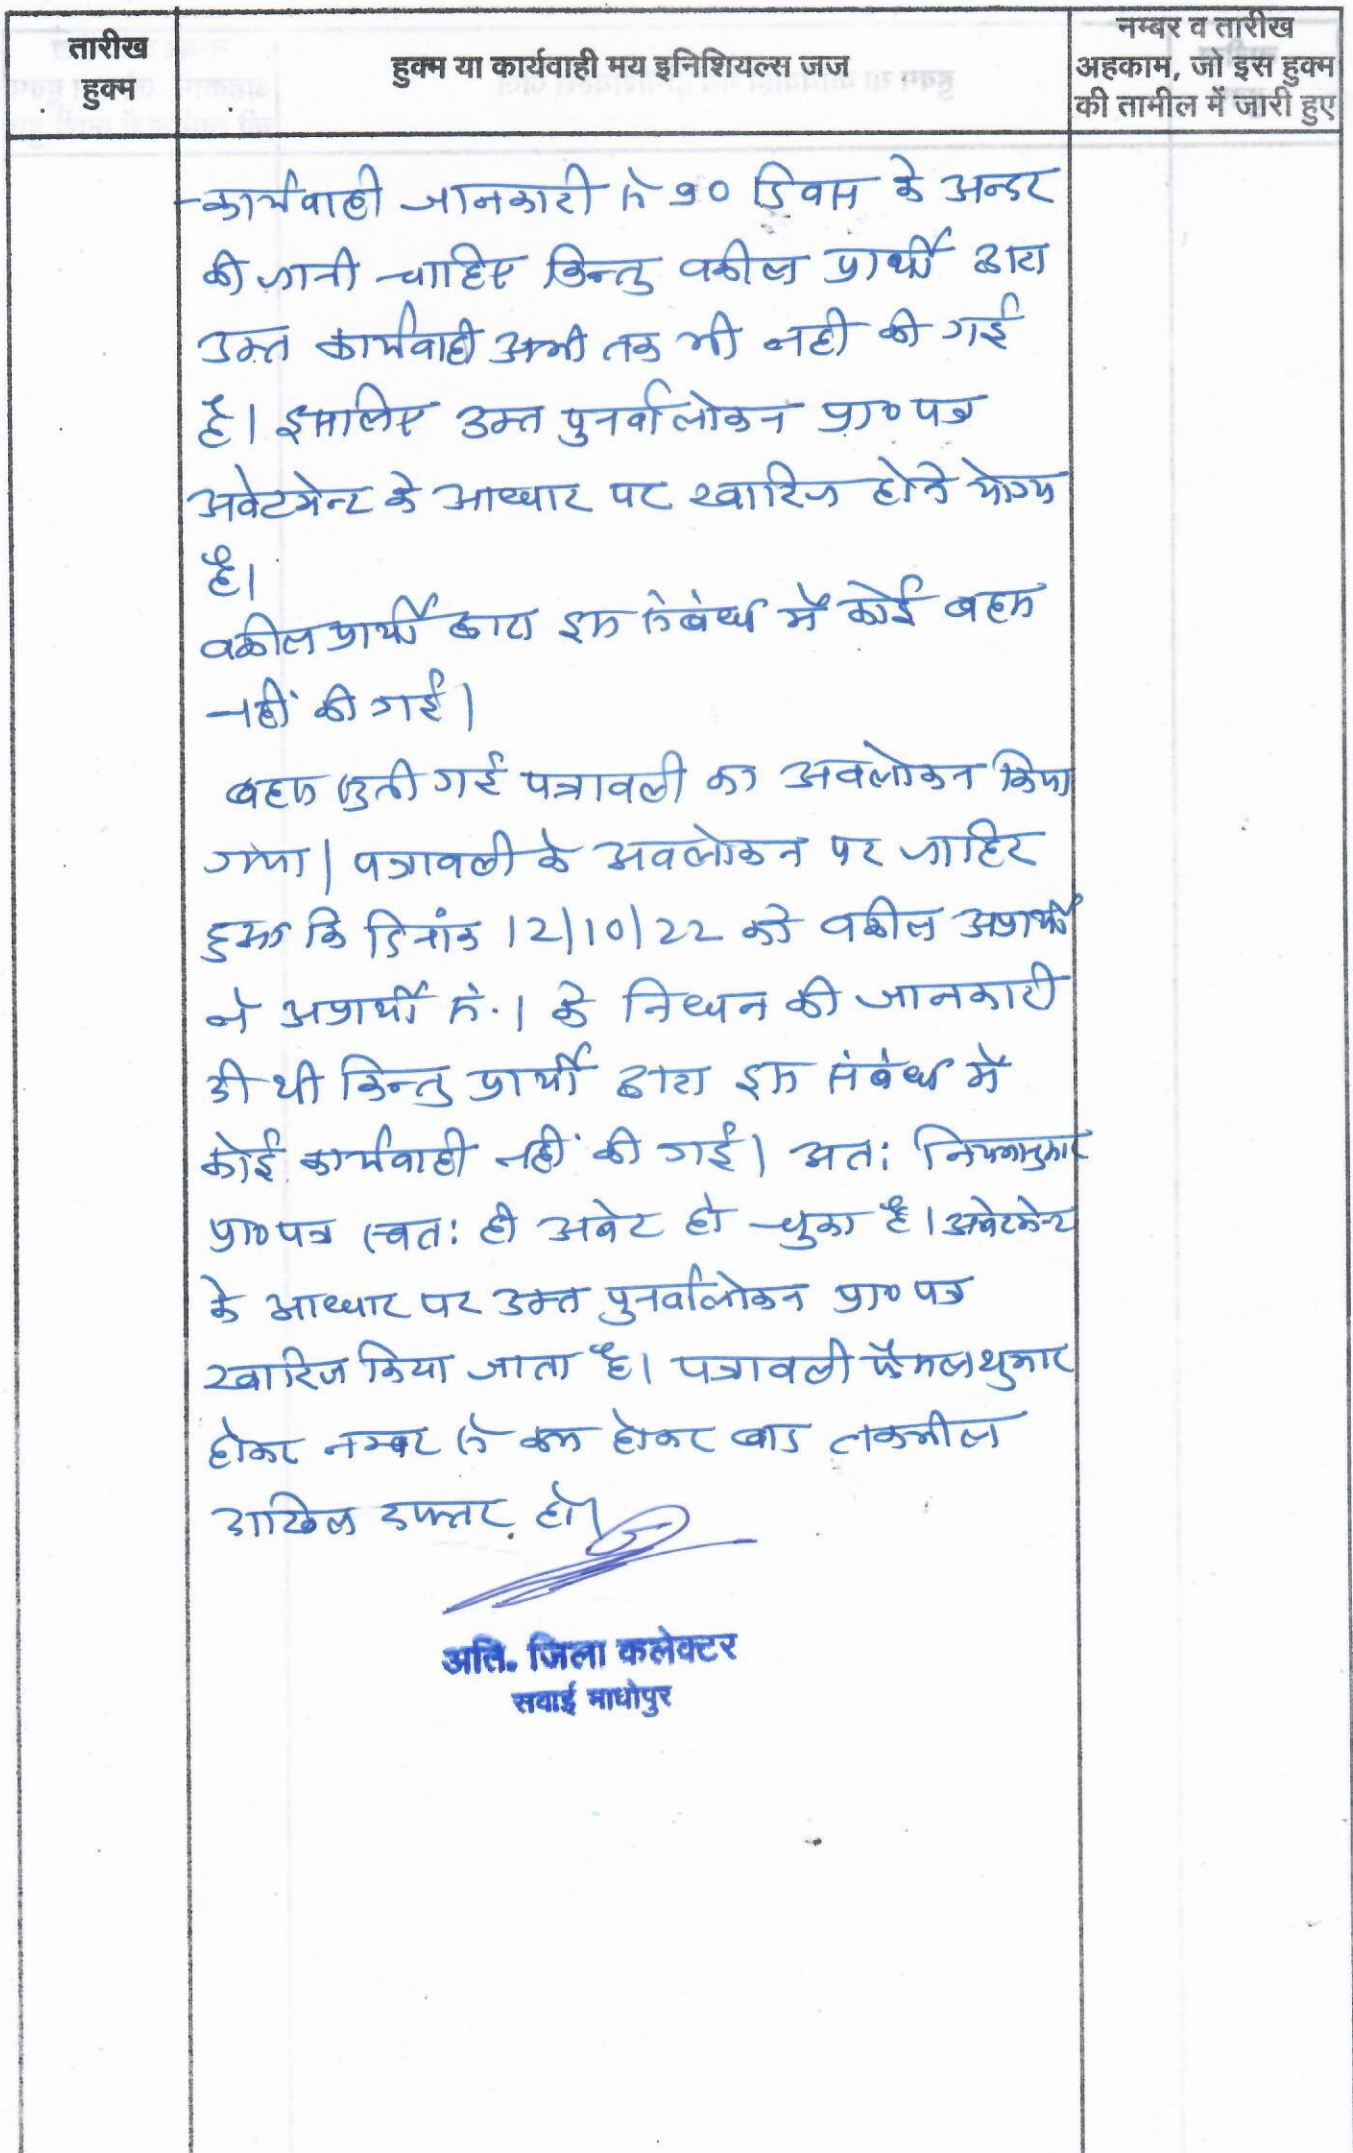 तारीख
हुक्म
हुक्म या कार्यवाही मय इनिशियल्स जज
नम्बर व तारीख
अहकाम, जो इस हुक्म
की तामील में जारी हुए
कार्यवाही जानकारी से 90 दिवस के अन्दर
की जानी चाहिए किन्तु वकील प्रार्थी द्वारा
उक्त कार्यवाही अभी तक भी नही की गई
है। इसलिए उक्त पुनर्वालोकन प्रा० पत्र
अबेटमेन्ट के आधार पर खारिज होने योग्य
है।
वकील प्रार्थी द्वारा इस संबंध में कोई बहस
नहीं की गई।
बहस सुनी गई पत्रावली का अवलोकन किया
गया। पत्रावली के अवलोकन पर जाहिर
हुआ कि दिनांक 12/10/22 को वकील अप्रार्थी
ने अप्रार्थी सं. 1 के निधन की जानकारी
दी थी किन्तु प्रार्थी द्वारा इस संबंध में
कोई कार्यवाही नहीं की गई। अत: नियमानुसार
प्रा० पत्र स्वत: ही अबेट हो चुका है। अबेटमेन्ट
के आधार पर उक्त पुनर्वालोकन प्रा० पत्र
खारिज किया जाता है। पत्रावली फैसलशुमार
होकर नम्बर से कम होकर बाद तकमील
दाखिल दफ्तर हो।
अति. जिला कलेक्टर
सवाई माधोपुर